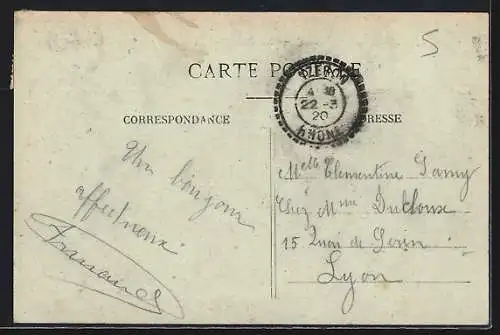 5
CARTE POSTALE
4 30
22 - 3
20
RHONE
CORRESPONDANCE
ADRESSE
Un bonjour
affectueux
Melle Clementine
Chez Mme Ducloux
15 Quai de
Lyon